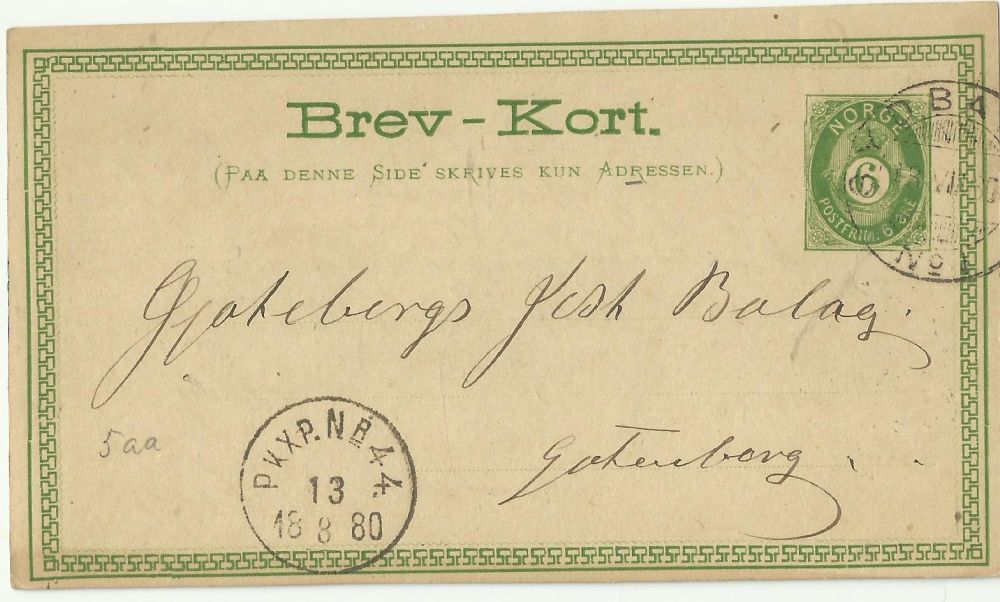 Brev-Kort.
(PAA DENNE SIDE SKRIVES KUN ADRESSEN.)
NORGE
6
POSTFRIM. 6 ØRE
No 1
Gjøtebergs Fisk Bolag.
Gøtenborg
5aa
PKXP. NR. 44.
13
18 8 80